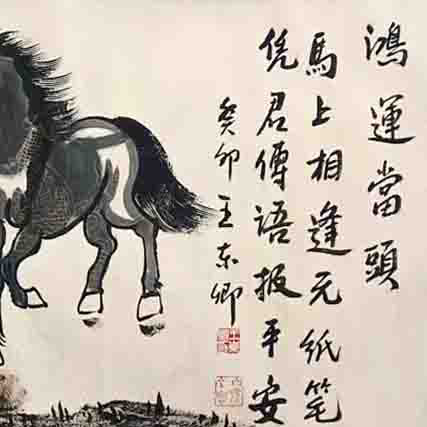 鴻運當頭
馬上相逢无纸笔
凭君傳语报平安
癸卯王东卿